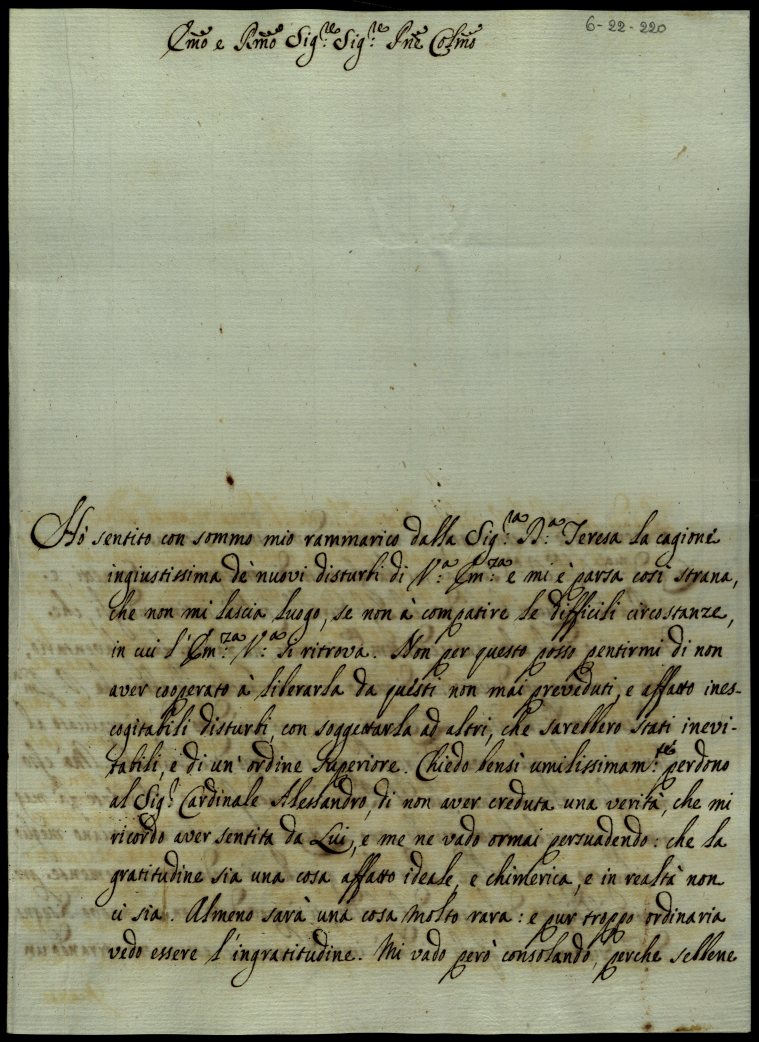 6-22-220
Em̃o e Rm̃o Sig.re Sig.re Pñe Colm̃o
Hò sentito con sommo mio rammarico dalla Sig.ra D.a Teresa la cagione
ingiustissima de' nuovi disturbi di V.a Em.za e mi è parsa così strana,
che non mi lascia luogo, se non à compatire le difficili circostanze,
in cui l'Em.za V.a si ritrova. Non per questo posso pentirmi di non
aver cooperato à liberarla da questi non mai preveduti, e affatto ines-
cogitabili disturbi, con soggettarla ad altri, che sarebbero stati inevi-
tabili, e di un' ordine superiore. Chiedo bensì umilissimam.te perdono
al Sig.r Cardinale Alessandro, di non aver creduta una verità, che mi
ricordo aver sentita da Lui, e me ne vado ormai persuadendo: che la
gratitudine sia una cosa affatto ideale, e chimerica, e in realtà non
ci sia. Almeno sarà una cosa molto rara: e pur troppo ordinaria
vedo essere l'ingratitudine. Mi vado però consolando, perche sebbene